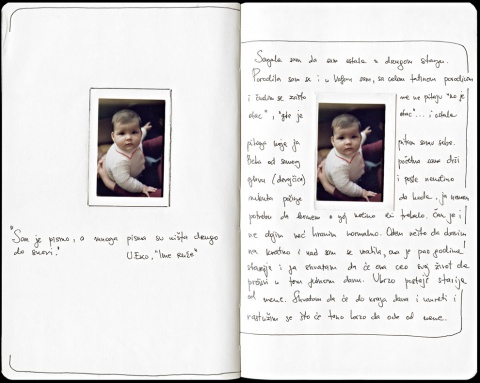 "San je pismo, a mnoga pisma su ništa drugo
do snovi."
U.Eko, "Ime ruže"
Sanjala sam da sam ostala u drugom stanju.
Porodila sam se i u Valjevu sam, sa celom tatinom porodicom
i čudim se zašto me ne pitaju "ko je
otac", "gde je otac"... i ostala
pitanja koja ja pitam samu sebe.
Beba od samog početka sama drži
glavu (devojčica) i posle nekoliko
minuta počinje da hoda, ja nemam
potrebu da brinem o njoj koliko bi trebalo, čak je i
ne dojim već hranim normalno. Odem nešto da završim
na kratko i kad sam se vratila, ona je par godina
starija i ja shvatam da će ona ceo svoj život da
proživi u tom jednom danu. Ubrzo postaje starija
od mene. Shvatam da će do kraja dana i umreti i
rastužim se što će tako brzo da ode od mene.